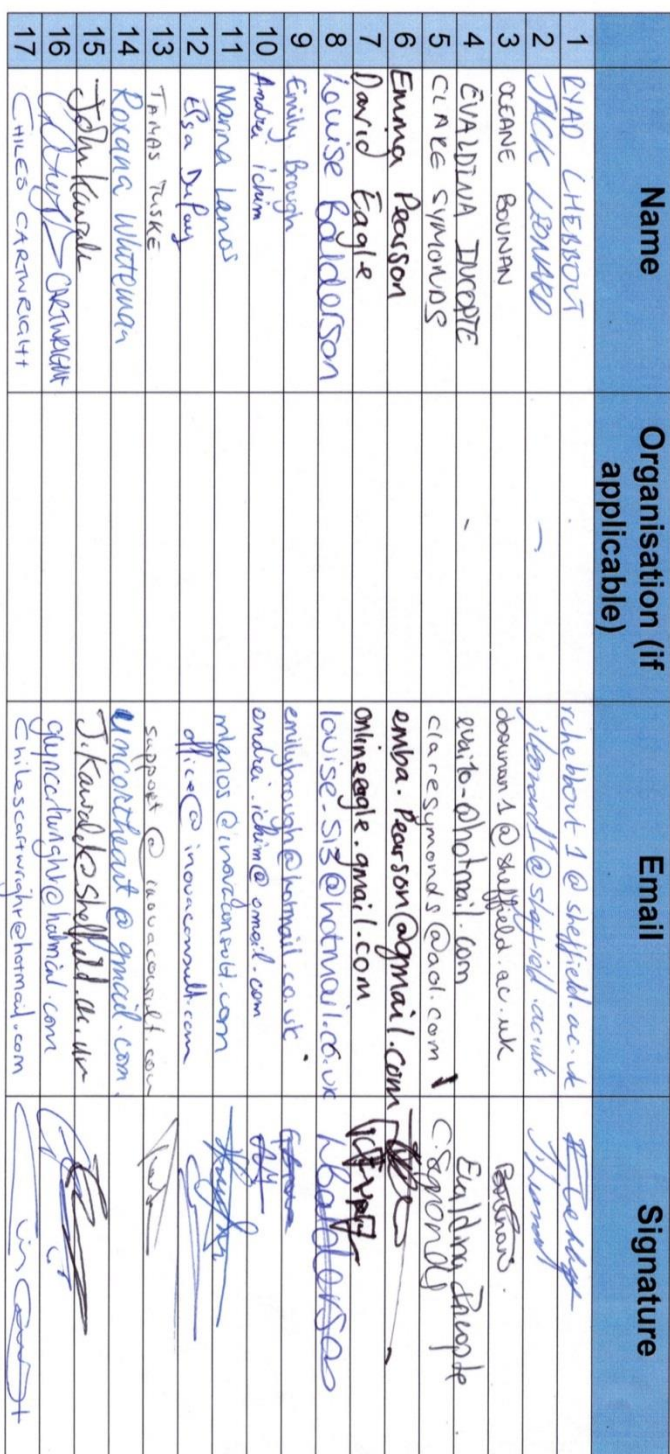 Name Organisation (if applicable) Email Signature
1 RYAD CHEBBOUT rchebbout1@sheffield.ac.uk
2 JACK LEONARD - jleonard1@sheffield.ac.uk J. Leonard
3 OCEANE BOUNAN obounan1@sheffield.ac.uk Bounan
4 EVALDINA INCOPTE - evaito-@hotmail.com Evaldina Incopte
5 CLARE SYMONDS claresymonds@aol.com C. Symonds
6 Emma Pearson emba.Pearson@gmail.com
7 David Eagle onlineeagle.gmail.com
8 Louise Balderson louise-513@hotmail.co.uk LBalderson
9 Emily Brough emilybrough@hotmail.co.uk
10 Andrei ichim andrei.ichim@gmail.com
11 Marina Larios mlarios@inovaconsult.com
12 Elsa DuPuy office@inovaconsult.com
13 TAMAS TUSKE support@inovaconsult.com
14 Roxana Whiteman uncortheart@gmail.com
15 John Kawalk J.Kawalk@Sheffield.ac.uk
16 CARTWRIGHT glyncartwright@hotmail.com
17 CHILES CARTWRIGHT Chilescartwright@hotmail.com